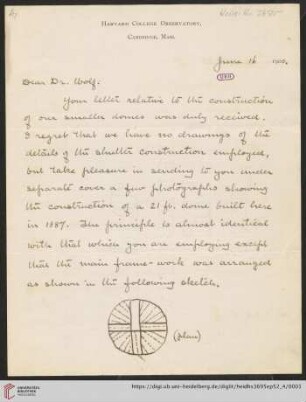 Harvard College Observatory,
Cambridge, Mass.
June 16
Dear Dr. Wolf:
Your letter relative to the construction
of our smaller domes was duly received.
I regret that we have no drawings of the
details of the shutter construction employed,
but take pleasure in sending to you under
separate cover a few photographs showing
the construction of a 21 ft. dome built here
in 1887. The principle is almost identical
with that which you are employing except
that the main frame-work was arranged
as shown in the following sketch.
(plan)
UNIVERSITÄTS-
BIBLIOTHEK
HEIDELBERG
https://digi.ub.uni-heidelberg.de/diglit/heidhs3695ep52_4/0001